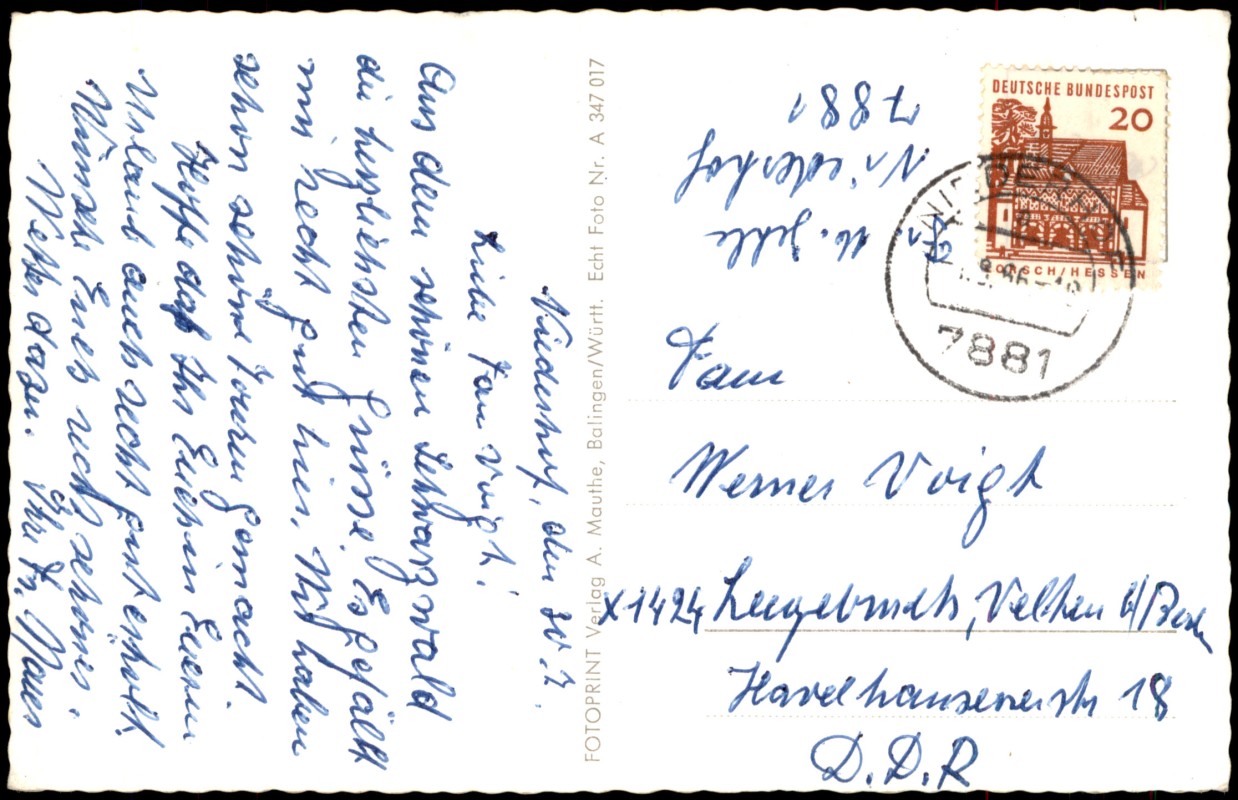 Niederhof, den 30.7.
Liebe Fam Voigt!
Aus dem schönen Schwarzwald
die herzlichsten Grüsse. Es gefällt
mir recht gut hier. Wir haben
schon schöne Touren gemacht.
Hoffe daß Ihr Euch in Eurem
Urlaub auch recht gut erholt.
Wünsche Euch recht schönes
Wetter dazu. Ihre Fr.
FOTOPRINT Verlag A. Mauthe, Balingen/Württ. Echt Foto Nr. A 347 017
Jehle
Niederhof
7881
DEUTSCHE BUNDESPOST
20
LORSCH/HESSEN
NIEDERHOF
7881
Fam
Werner Voigt
X1424 Leegebruch, Velten b/Berlin
Havelhausenerstr 18
D.D.R